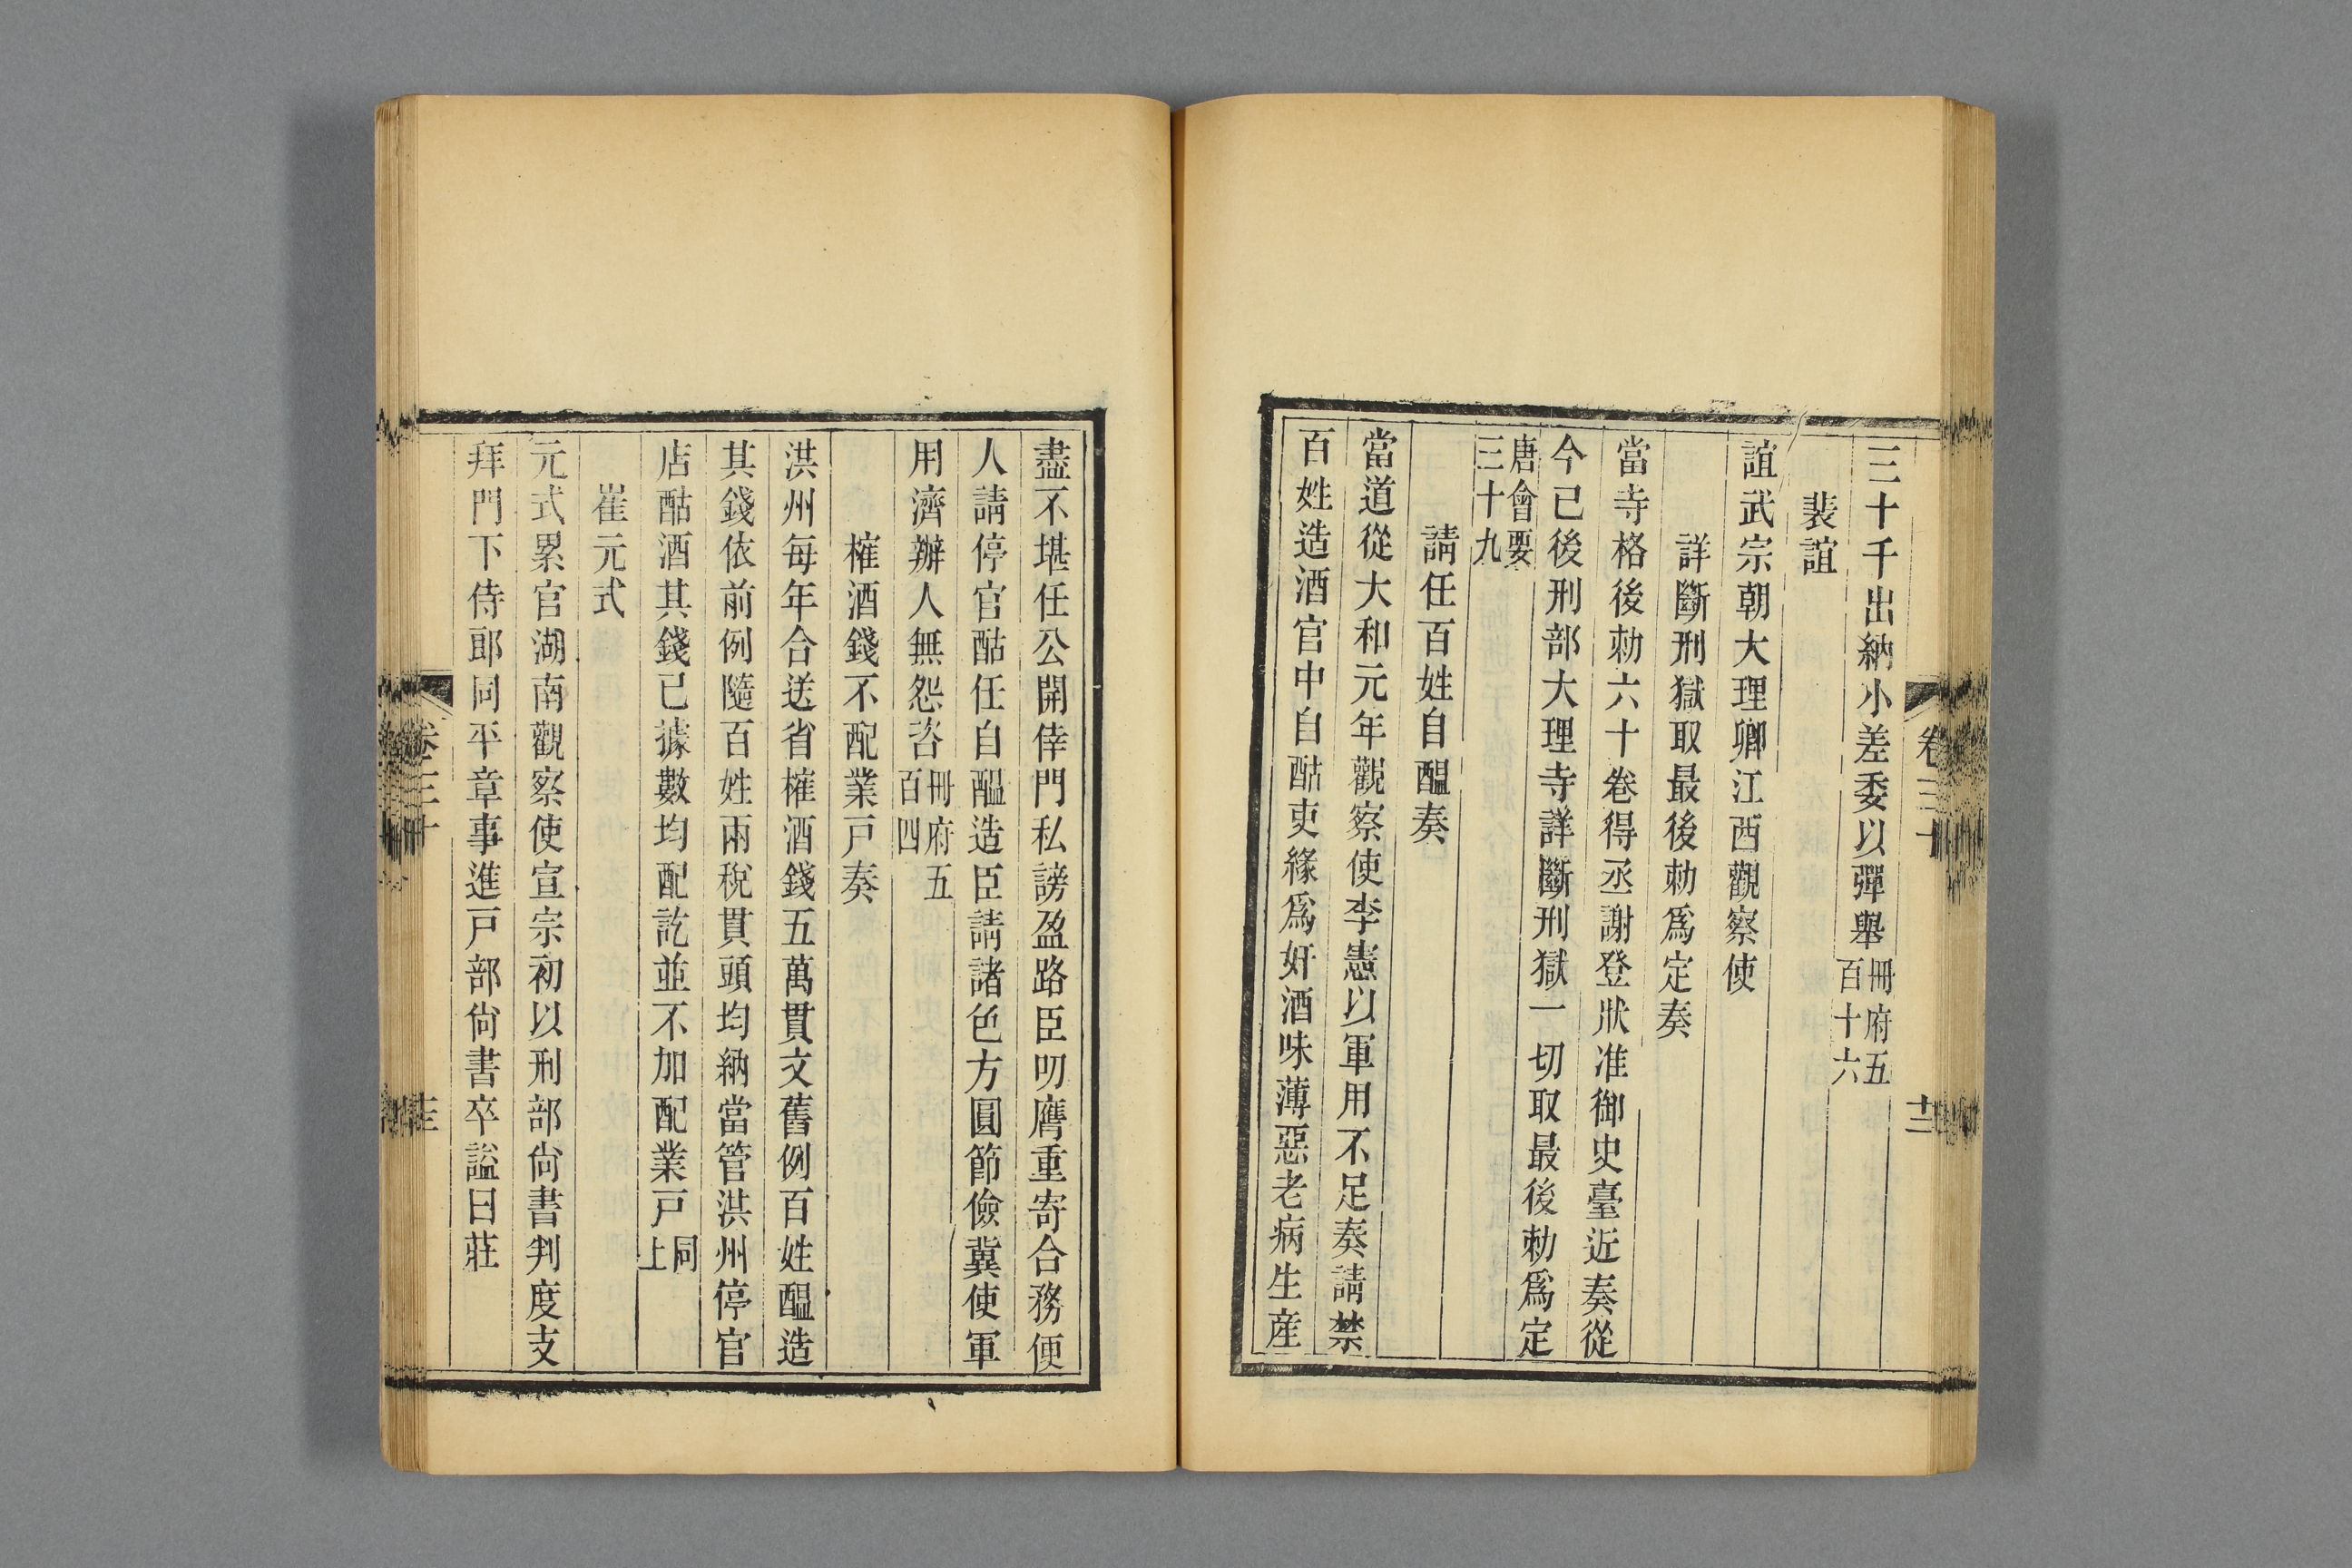 三十千出納小差委以彈舉冊府五百十六
裴誼
誼武宗朝大理卿江西觀察使
詳斷刑獄取最後勅爲定奏
當寺格後勅六十卷得丞謝登狀准御史臺近奏從
今已後刑部大理寺詳斷刑獄一切取最後勅爲定
唐會要三十九
請任百姓自醞奏
當道從大和元年觀察使李憲以軍用不足奏請禁
百姓造酒官中自酤吏緣爲奸酒味薄惡老病生産
卷三十
盡不堪任公開倖門私謗盈路臣叨膺重寄合務便
人請停官酤任自醞造臣請諸色方圓節儉冀使軍
用濟辦人無怨咨冊府五百四
榷酒錢不配業戸奏
洪州每年合送省榷酒錢五萬貫文舊例百姓醞造
其錢依前例隨百姓兩稅貫頭均納當管洪州停官
店酤酒其錢已據數均配訖並不加配業戸同上
崔元式
元式累官湖南觀察使宣宗初以刑部尙書判度支
拜門下侍郎同平章事進戸部尙書卒謚曰莊
卷三十